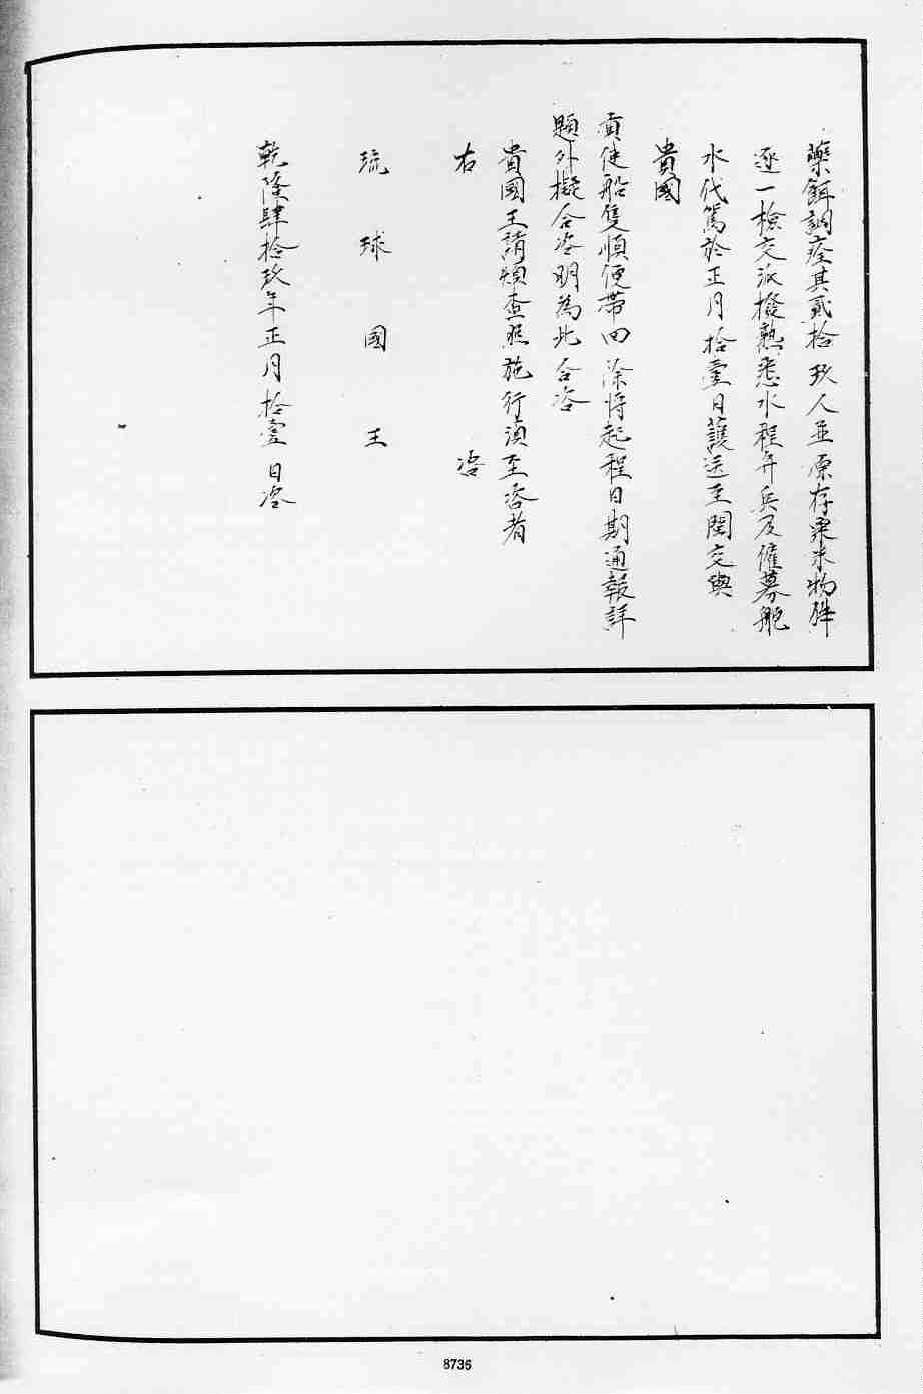 藥餌調痊其貳拾玖人並原存粟米物件
逐一檢交派撥熟悉水程弁兵及僱募舵
水代駕於正月拾壹日護送至閩交與
貴國
貢使船隻順便帶回除將起程日期通報詳
題外擬合咨明為此合咨
貴國王請煩查照施行須至咨者
右 咨
琉球國王
乾隆肆拾玖年正月拾壹日咨
8736